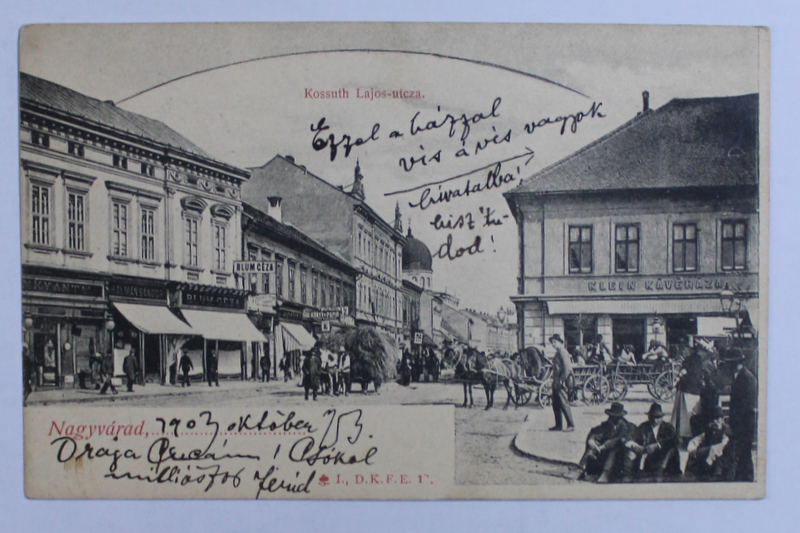 Kossuth Lajos-utcza.
Ezzel a házzal
vis á vis vagyok
hivatalba!
hisz "tu-
dod!
BLUM GÉZA
BLUM GÉZA
KLEIN KÁVÉHÁZA
Nagyvárad, 1903 október
Drága Czicám! Csókol
milliószor Ferid
I., D.K.F.E.